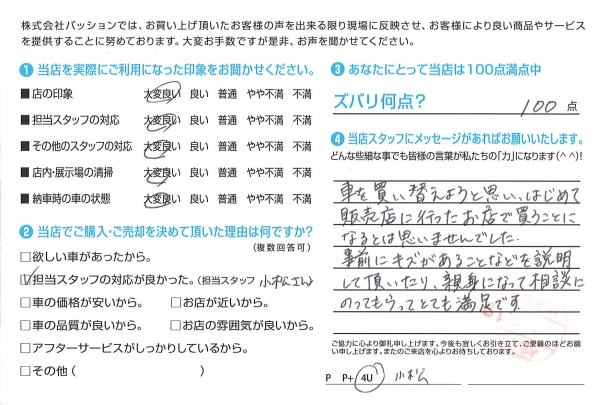 株式会社パッションでは、お買い上げ頂いたお客様の声を出来る限り現場に反映させ、お客様により良い商品やサービス
を提供することに努めております。大変お手数ですが是非、お声を聞かせてください。
❶ 当店を実際にご利用になった印象をお聞かせください。
■ 店の印象 大変良い 良い 普通 やや不満 不満
■ 担当スタッフの対応 大変良い 良い 普通 やや不満 不満
■ その他のスタッフの対応 大変良い 良い 普通 やや不満 不満
■ 店内・展示場の清掃 大変良い 良い 普通 やや不満 不満
■ 納車時の車の状態 大変良い 良い 普通 やや不満 不満
❷ 当店でご購入・ご売却を決めて頂いた理由は何ですか?
(複数回答可)
□欲しい車があったから。
☑担当スタッフの対応が良かった。(担当スタッフ 小松さん)
□車の価格が安いから。 □お店が近いから。
□車の品質が良いから。 □お店の雰囲気が良いから。
□アフターサービスがしっかりしているから。
□その他 ( )
❸ あなたにとって当店は100点満点中
ズバリ何点? 100 点
❹ 当店スタッフにメッセージがあればお願いいたします。
どんな些細な事でも皆様の言葉が私たちの「力」になります(^ ^)!
車を買い替えようと思い、はじめて
販売店に行ったお店で買うことに
なるとは思いませんでした.
事前にキズがあることなどを説明
して頂いたり、親身になって相談に
のってもらってとても満足です.
ご協力に心より御礼申し上げます。今後も宜しくお引き立て、ご愛顧のほどお願
い申し上げます。またのご来店を心よりお待ちしております。
P P+ 4U 小松